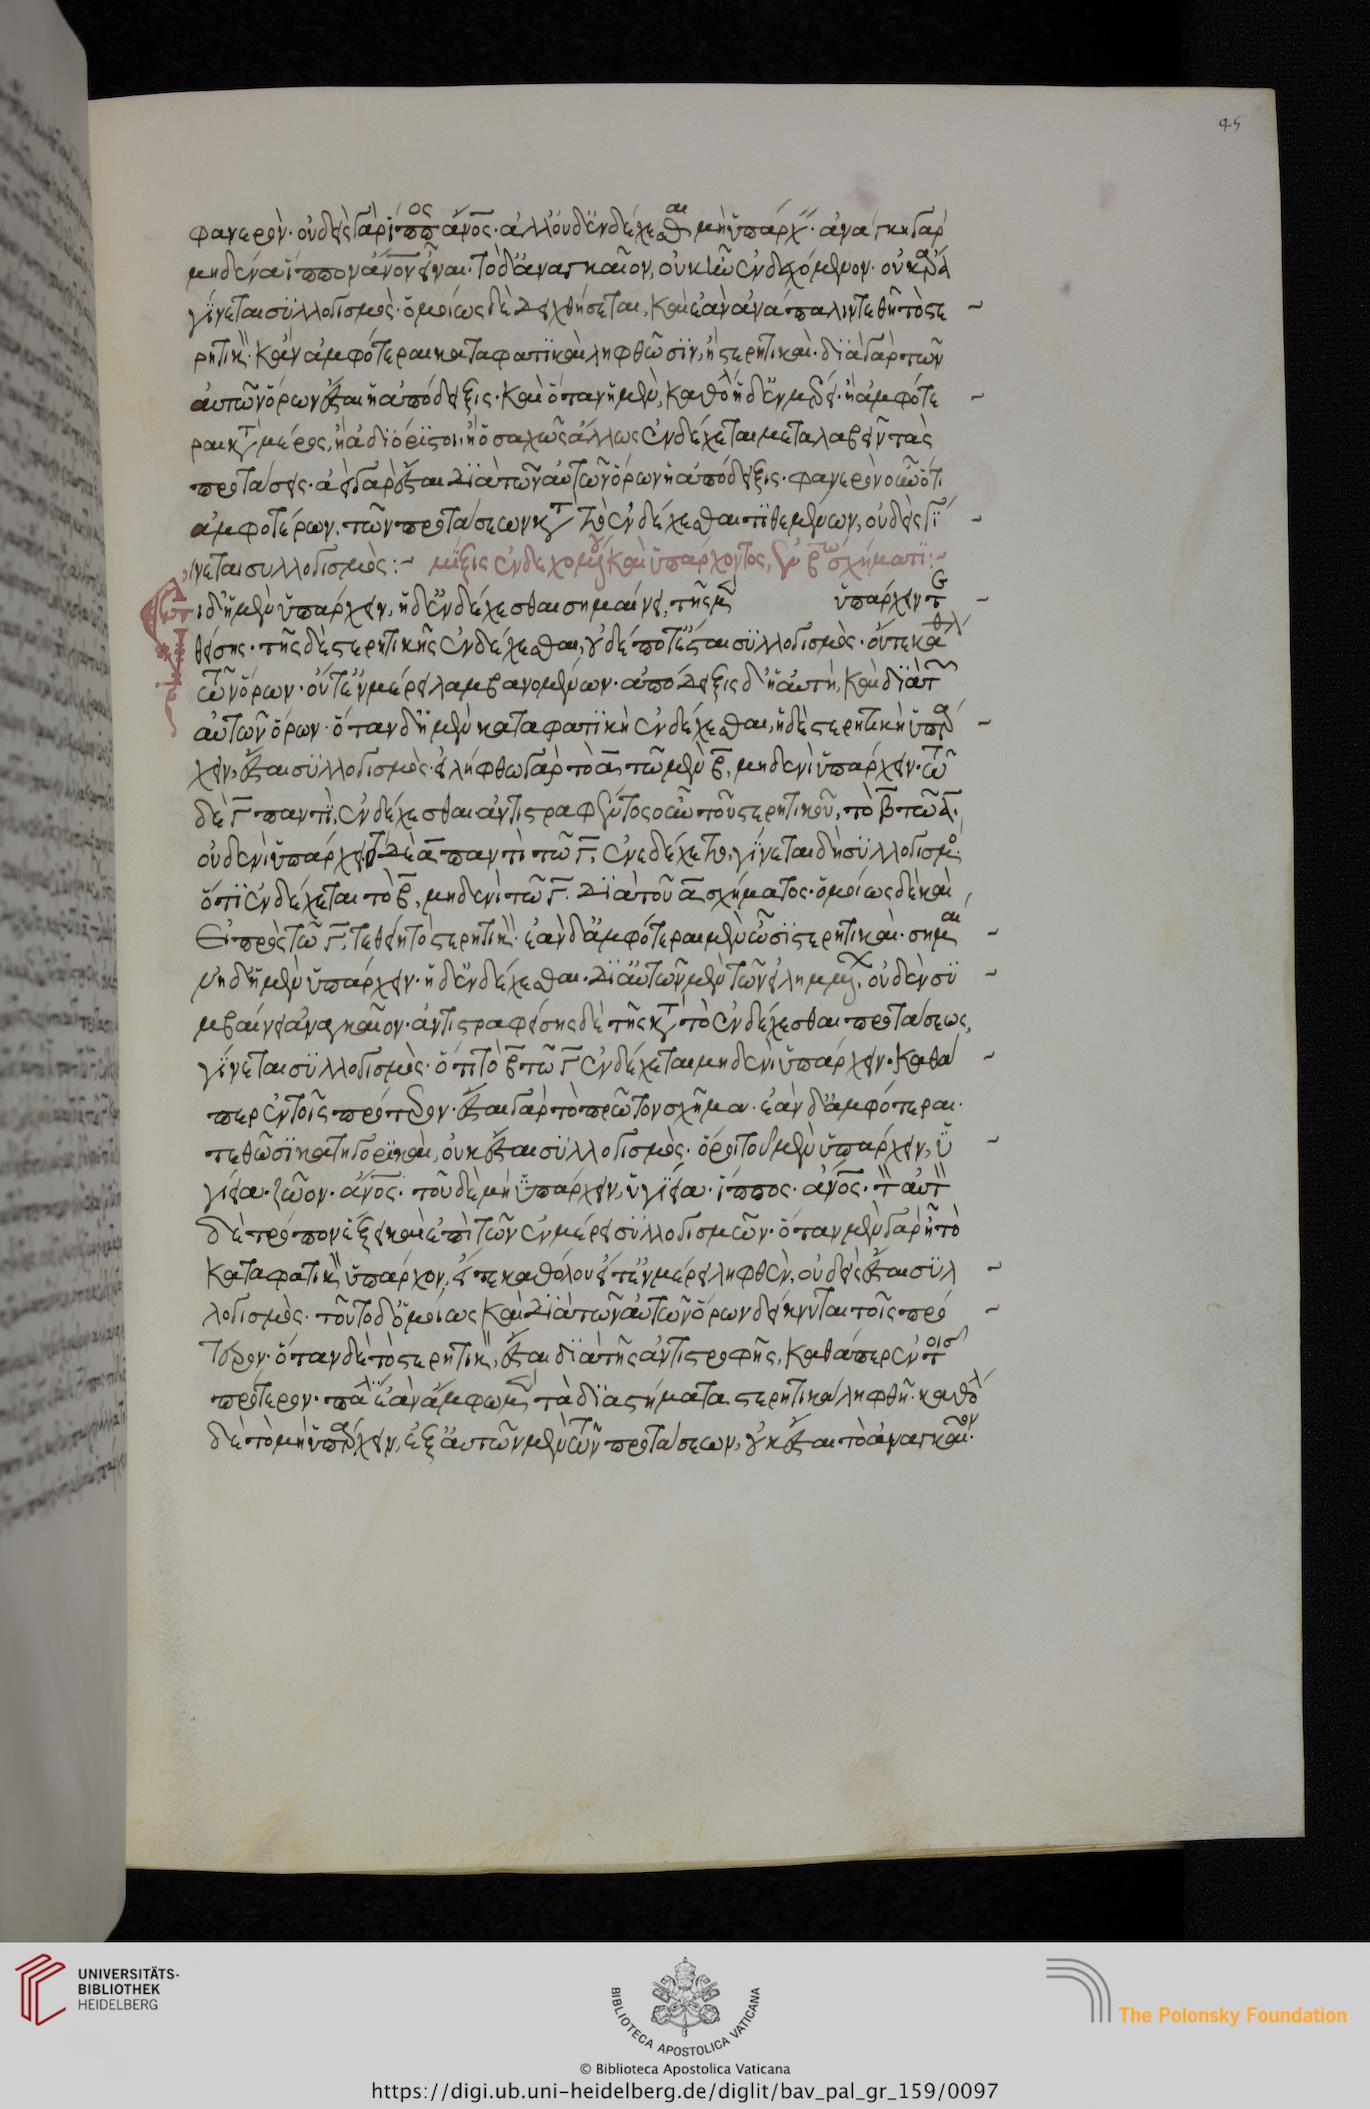 45
φανερόν· οὐδεὶς γὰρ ἵππος ἄνος· ἀλλ' οὐδ' ἐνδέχεσθαι μὴ ὑπάρχ· ἀνάγκη γὰρ
μηδένα ἵππον ἄνον εἶναι· τὸ δ' ἀναγκαῖον, οὐκ ἦν ἐνδεχόμενον· οὐκ ἄρα
γίνεται συλλογισμός· ὁμοίως δὲ δειχθήσεται, καὶ ἐὰν ἀνάπαλιν τεθῆ τὸ στε
ρητικ· κἂν ἀμφότεραι καταφατικαὶ ληφθῶσιν, ἢ στερητικαὶ· διὰ γὰρ τῶν
αὐτῶν ὅρων ἔσται ἡ ἀπόδειξις· καὶ ὅταν ἡ μὲν, καθόλ ἡ δ' ἐν μέρει· ἢ ἀμφότε
ραι κτ μέρος, ἢ ἀδιόριστοι, ἢ ὁσαχῶς ἄλλως ἐνδέχεται μεταλαβεῖν τὰς
προτάσεις· ἀεὶ γὰρ ἔσται διὰ τῶν αὐτῶν ὅρων ἡ ἀπόδειξις· φανερὸν οὖν ὅτι
ἀμφοτέρων, τῶν προτάσεων κτ τὸ ἐνδέχεσθαι τιθεμένων, οὐδεὶς γί
νεται συλλογισμός:- μίξις ἐνδεχομένου καὶ ὑπάρχοντος, ἐν β σχήματι:-
ει δ' ἡ μὲν ὑπάρχειν, ἡ δ' ἐνδέχεσθαι σημαίνει, τῆς μὲν ὑπάρχειν τ
θείσης· τῆς δὲ στερητικῆς ἐνδέχεσθαι, οὐδέποτ' ἔσται συλλογισμός· οὔτε καθόλ
τῶν ὅρων· οὔτ' ἐν μέρει λαμβανομένων· ἀπόδειξις δ' ἡ αὐτὴ, καὶ διὰ τ
αὐτῶν ὅρων· ὅταν δ' ἡ μὲν καταφατικὴ ἐνδέχεσθαι, ἡ δὲ στερητικὴ ὑπάρ
χειν, ἔσται συλλογισμός· εἰλήφθω γὰρ τὸ α τῶ μὲν β, μηδενὶ ὑπάρχειν· τῶ
δὲ Γ παντὶ, ἐνδέχεσθαι· ἀντιστραφέντος οὖν τοῦ στερητικοῦ, τὸ β τῶ α·
οὐδενὶ ὑπάρχει τὸ δὲ α παντὶ τῶ Γ, ἐνεδέχετο, γίνεται δὴ συλλογισμο
ὅτι ἐνδέχεται τὸ β, μηδενὶ τῶ Γ. διὰ τοῦ α σχήματος· ὁμοίως δὲ καὶ
εἰ πρὸς τῶ Γ. τεθείη τὸ στερητικ· ἐὰν δ' ἀμφότεραι μὲν ὦσι στερητικαὶ· σημαί
νη δ' ἡ μὲν ὑπάρχειν· ἡ δ' ἐνδέχεσθαι. δι' αὐτῶν μὲν τῶν εἰλημμένων, οὐδὲν συ
μβαίνει ἀναγκαῖον· ἀντιστραφείσης δὲ τῆς κτ τὸ ἐνδέχεσθαι προτάσεως,
γίνεται συλλογισμός· ὅτι τὸ β τῶ Γ ἐνδέχεται μηδενὶ ὑπάρχειν· καθά
περ ἐν τοῖς πρότερον· ἔσται γὰρ τὸ πρῶτον σχῆμα· ἐὰν δ' ἀμφότεραι·
τεθῶσι κατηγορικαὶ, οὐκ ἔσται συλλογισμός· ὅροι τοῦ μὲν ὑπάρχειν, ὑ
γίεια· ζῶον· ἄνος· τοῦ δὲ μὴ ὑπάρχειν, ὑγίεια· ἵππος· ἄνος· τ αὐτ
δὲ τρόπον ἕξει καὶ ἐπὶ τῶν ἐν μέρει συλλογισμῶν· ὅταν μὲν γὰρ ἦ τὸ
καταφατικ ὑπάρχον, εἴτε καθόλου εἴτ' ἐν μέρει ληφθὲν, οὐδεὶς ἔσται συλ
λογισμός· τοῦτο δ' ὁμοίως καὶ διὰ τῶν αὐτῶν ὅρων δείκνυται τοῖς πρό
τερον· ὅταν δὲ τὸ στερητικ, ἔσται διὰ τῆς ἀντιστροφῆς, καθάπερ ἐν τοῖσ
πρότερον· πάλι ἐὰν ἄμφω μὲν τὰ διαστήματα στερητικὰ ληφθῆ· καθόλ
δὲ τὸ μὴ ὑπάρχειν, ἐξ αὐτῶν μὲν τῶν προτάσεων, οὐκ ἔσται τὸ ἀναγκαῖον·
UNIVERSITÄTS-
BIBLIOTHEK
HEIDELBERG
BIBLIOTECA APOSTOLICA VATICANA
The Polonsky Foundation
© Biblioteca Apostolica Vaticana
https://digi.ub.uni-heidelberg.de/diglit/bav_pal_gr_159/0097